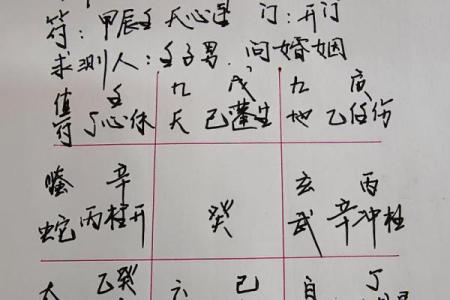 符：甲辰壬 天心星 门：开门
求测人：壬子男，问婚姻
值 壬 九 戊 九 庚
符 丁心休 天 己蓬生 地 乙任伤
螣 辛 玄 丙
蛇 丙柱开 癸 武 辛冲杜
太 乙癸 六 己 白 丁